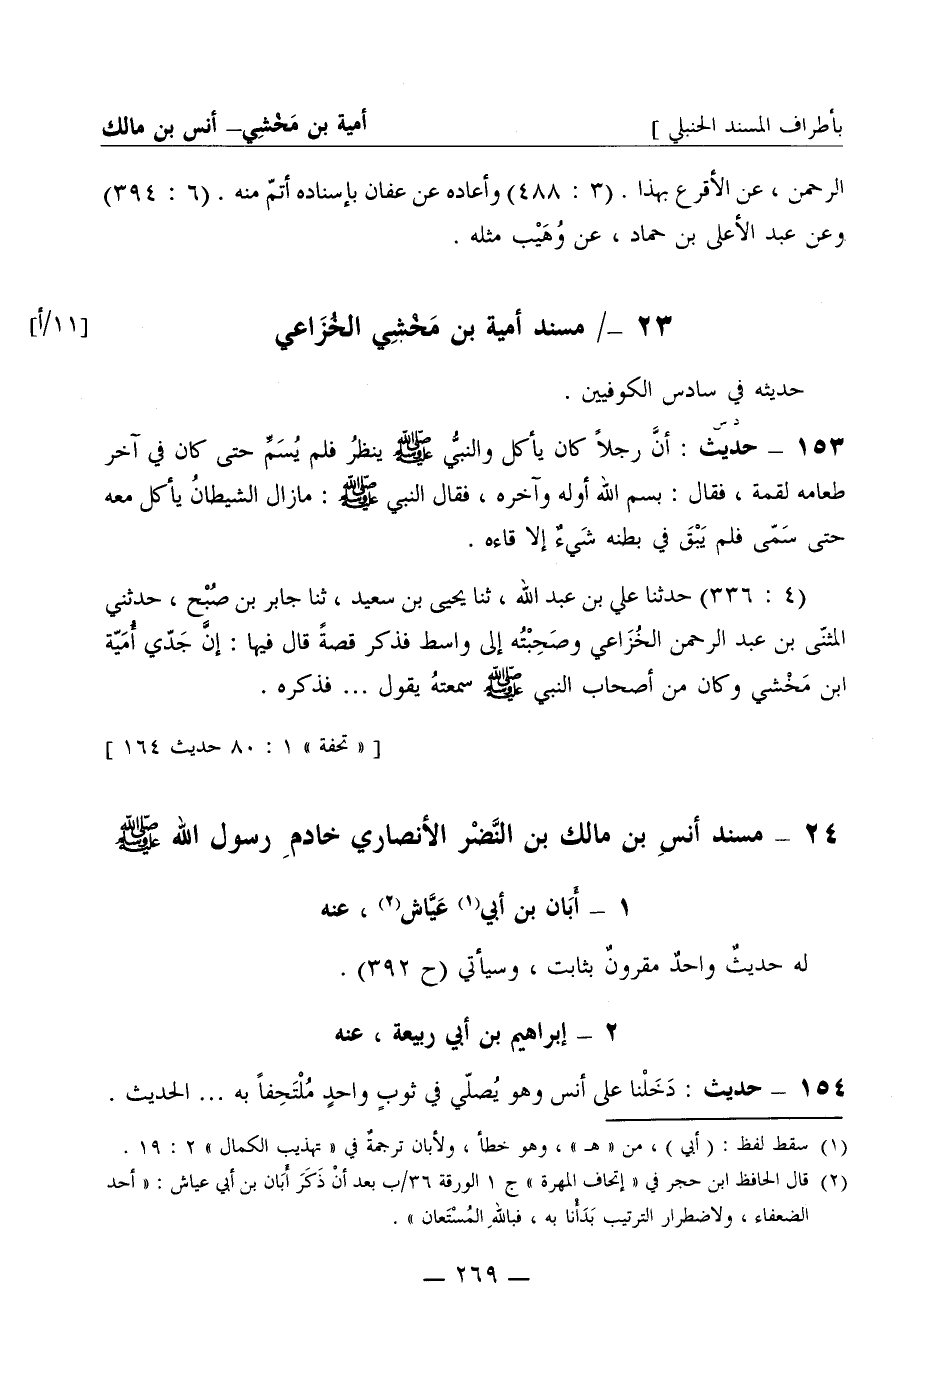 بأطراف المسند الحنبلي ] أمية بن مَخْشِي – أنس بن مالك
الرحمن ، عن الأقرع بهذا . (٣ : ٤٨٨) وأعاده عن عفان بإسناده أتمّ منه . (٦ : ٣٩٤)
وعن عبد الأعلى بن حماد ، عن وُهَيْب مثله .
٢٣ – / مسند أمية بن مَخْشِي الخُزَاعي [١١/أ]
حديثه في سادس الكوفيين .
د س
١٥٣ – حديث : أنَّ رجلاً كان يأكل والنبيُّ ﷺ ينظرُ فلم يُسَمِّ حتى كان في آخر
طعامه لقمة ، فقال : بسم الله أوله وآخره ، فقال النبي ﷺ : مازال الشيطانُ يأكل معه
حتى سَمّى فلم يَبْقَ في بطنه شَيءٌ إلا قاءه .
(٤ : ٣٣٦) حدثنا علي بن عبد الله ، ثنا يحيى بن سعيد ، ثنا جابر بن صُبْح ، حدثني
المثنّى بن عبد الرحمن الخُزَاعي وصَحِبْتُه إلى واسط فذكر قصةً قال فيها : إنَّ جَدّي أُمَيّة
ابن مَخْشي وكان من أصحاب النبي ﷺ سمعتهُ يقول ... فذكره .
[ « تحفة » ١ : ٨٠ حديث ١٦٤ ]
٢٤ – مسند أنسِ بن مالك بن النَّضْر الأنصاري خادمِ رسول الله ﷺ
١ – أَبَان بن أبي(١) عَيَّاش(٢) ، عنه
له حديثٌ واحدٌ مقرونٌ بثابت ، وسيأتي (ح ٣٩٢) .
٢ – إبراهيم بن أبي ربيعة ، عنه
١٥٤ – حديث : دَخَلْنا على أنس وهو يُصلّي في ثوبٍ واحدٍ مُلْتَحِفاً به ... الحديث .
(١) سقط لفظ : ( أبي ) ، من « هـ » ، وهو خطأ ، ولأبان ترجمةٌ في « تهذيب الكمال » ٢ : ١٩ .
(٢) قال الحافظ ابن حجر في « إتحاف المهرة » ج ١ الورقة ٣٦/ب بعد أنْ ذَكَرَ أَبَان بن أبي عياش : « أحد
الضعفاء ، ولاضطرار الترتيب بَدَأْنا به ، فبالله المُسْتَعان » .
– ٢٦٩ –